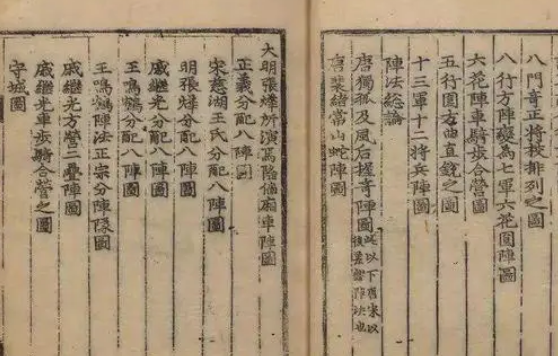 八門奇正將校排列之圖
八行方陣變為七軍六花圓陣圖
六花陣車騎步合營圖
五行圓方曲直銳之圖
十三軍十二將兵陣圖
陣法總論
唐獨孤及風后握奇陣圖
此以下唐宋以
後陣法也
唐裴緒常山蛇陣圖
大明張所演偏廂車陣圖
正義分配八陣圖
宋慈湖王氏分配八陣圖
明張分配八陣圖
戚繼光分配八陣圖
王鳴鶴分配八陣圖
王鳴鶴陣法正宗分陣隊圖
戚繼光方營二疊陣圖
戚繼光車步騎合營之圖
守城圖